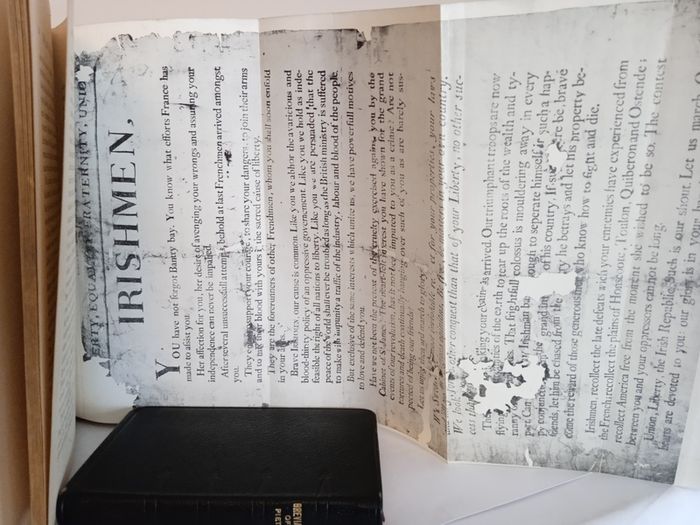 ERTY EQUAL FRATERNITY, UNIO
IRISHMEN,
YOU have not forgot Bantry bay. You know what efforts France has
made to assist you.
Her affection for you, her desire of avenging your wrongs and assuring your
independence can never be impaired.
After several unsuccessfull attempts, behold at last Frenchmen arrived amongst
you.
They come to support your courage, to share your dangers, to join their arms
and to mix their blood with yours in the sacred cause of liberty.
They are the forerunners of other Frenchmen, whom you shall soon enfold
in your arms.
Brave Irishmen, our cause is common. Like you we abhor the avaricious and
blood-thirsty policy of an oppressive governement. Like you we hold as inde-
feasible the right of all nations to liberty. Like you we are persuaded that the
peace of the World shall ever be troubled as long as the British ministry is suffered
to make with impunity a traffic of the industry, labour and blood of the people.
But exclusive of the same interests which unite us, we have powerfull motives
to love and defend you.
Have we not been the pretext of the cruelty exercised against you by the
Cabinet of St. James? The heart-felt interest you have shown in the grand
events of our revolution, has it not been imputed to you as a crime? Are not
tortures and death continually hanging over such of you as are barely sus-
pected of being our friends?
Let us unite and march to glory.
your properties, your laws
country.
We other conquest than that of your Liberty, no other suc-
cess than
The king your chains is arrived. Our triumphant troops are now
flying ities of the earth to tear up the roots of the wealth and ty-
ranny That frightfull colossus is mouldering away in every
part. Can Irishman ough to seperate himself such a hap-
py the grand of his country. If here be, brave
friends, let him be chased from the y he betrays and let his property be-
come the reward of those generous who know how to fight and die.
Irishmen, recollect the late defeats wich your ennemies have experienced from
the French; recollect the plains of Honscoote, Toulon, Quiberon and Ostende;
recollect America free from the moment she wished to be so. The contest
between you and your oppressors cannot be long.
Union, Liberty, the Irish Republic, such is your shout. Let us march
hearts are devoted to you: our glory is in your
BREVIA
OF
PIET